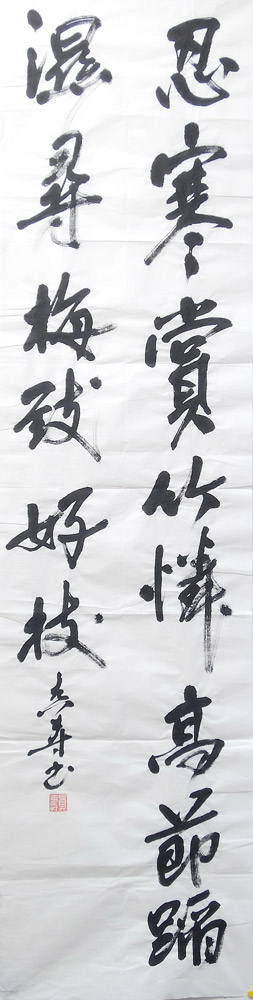 忍寒賞竹憐高節蹈
濕尋梅致好枝
書